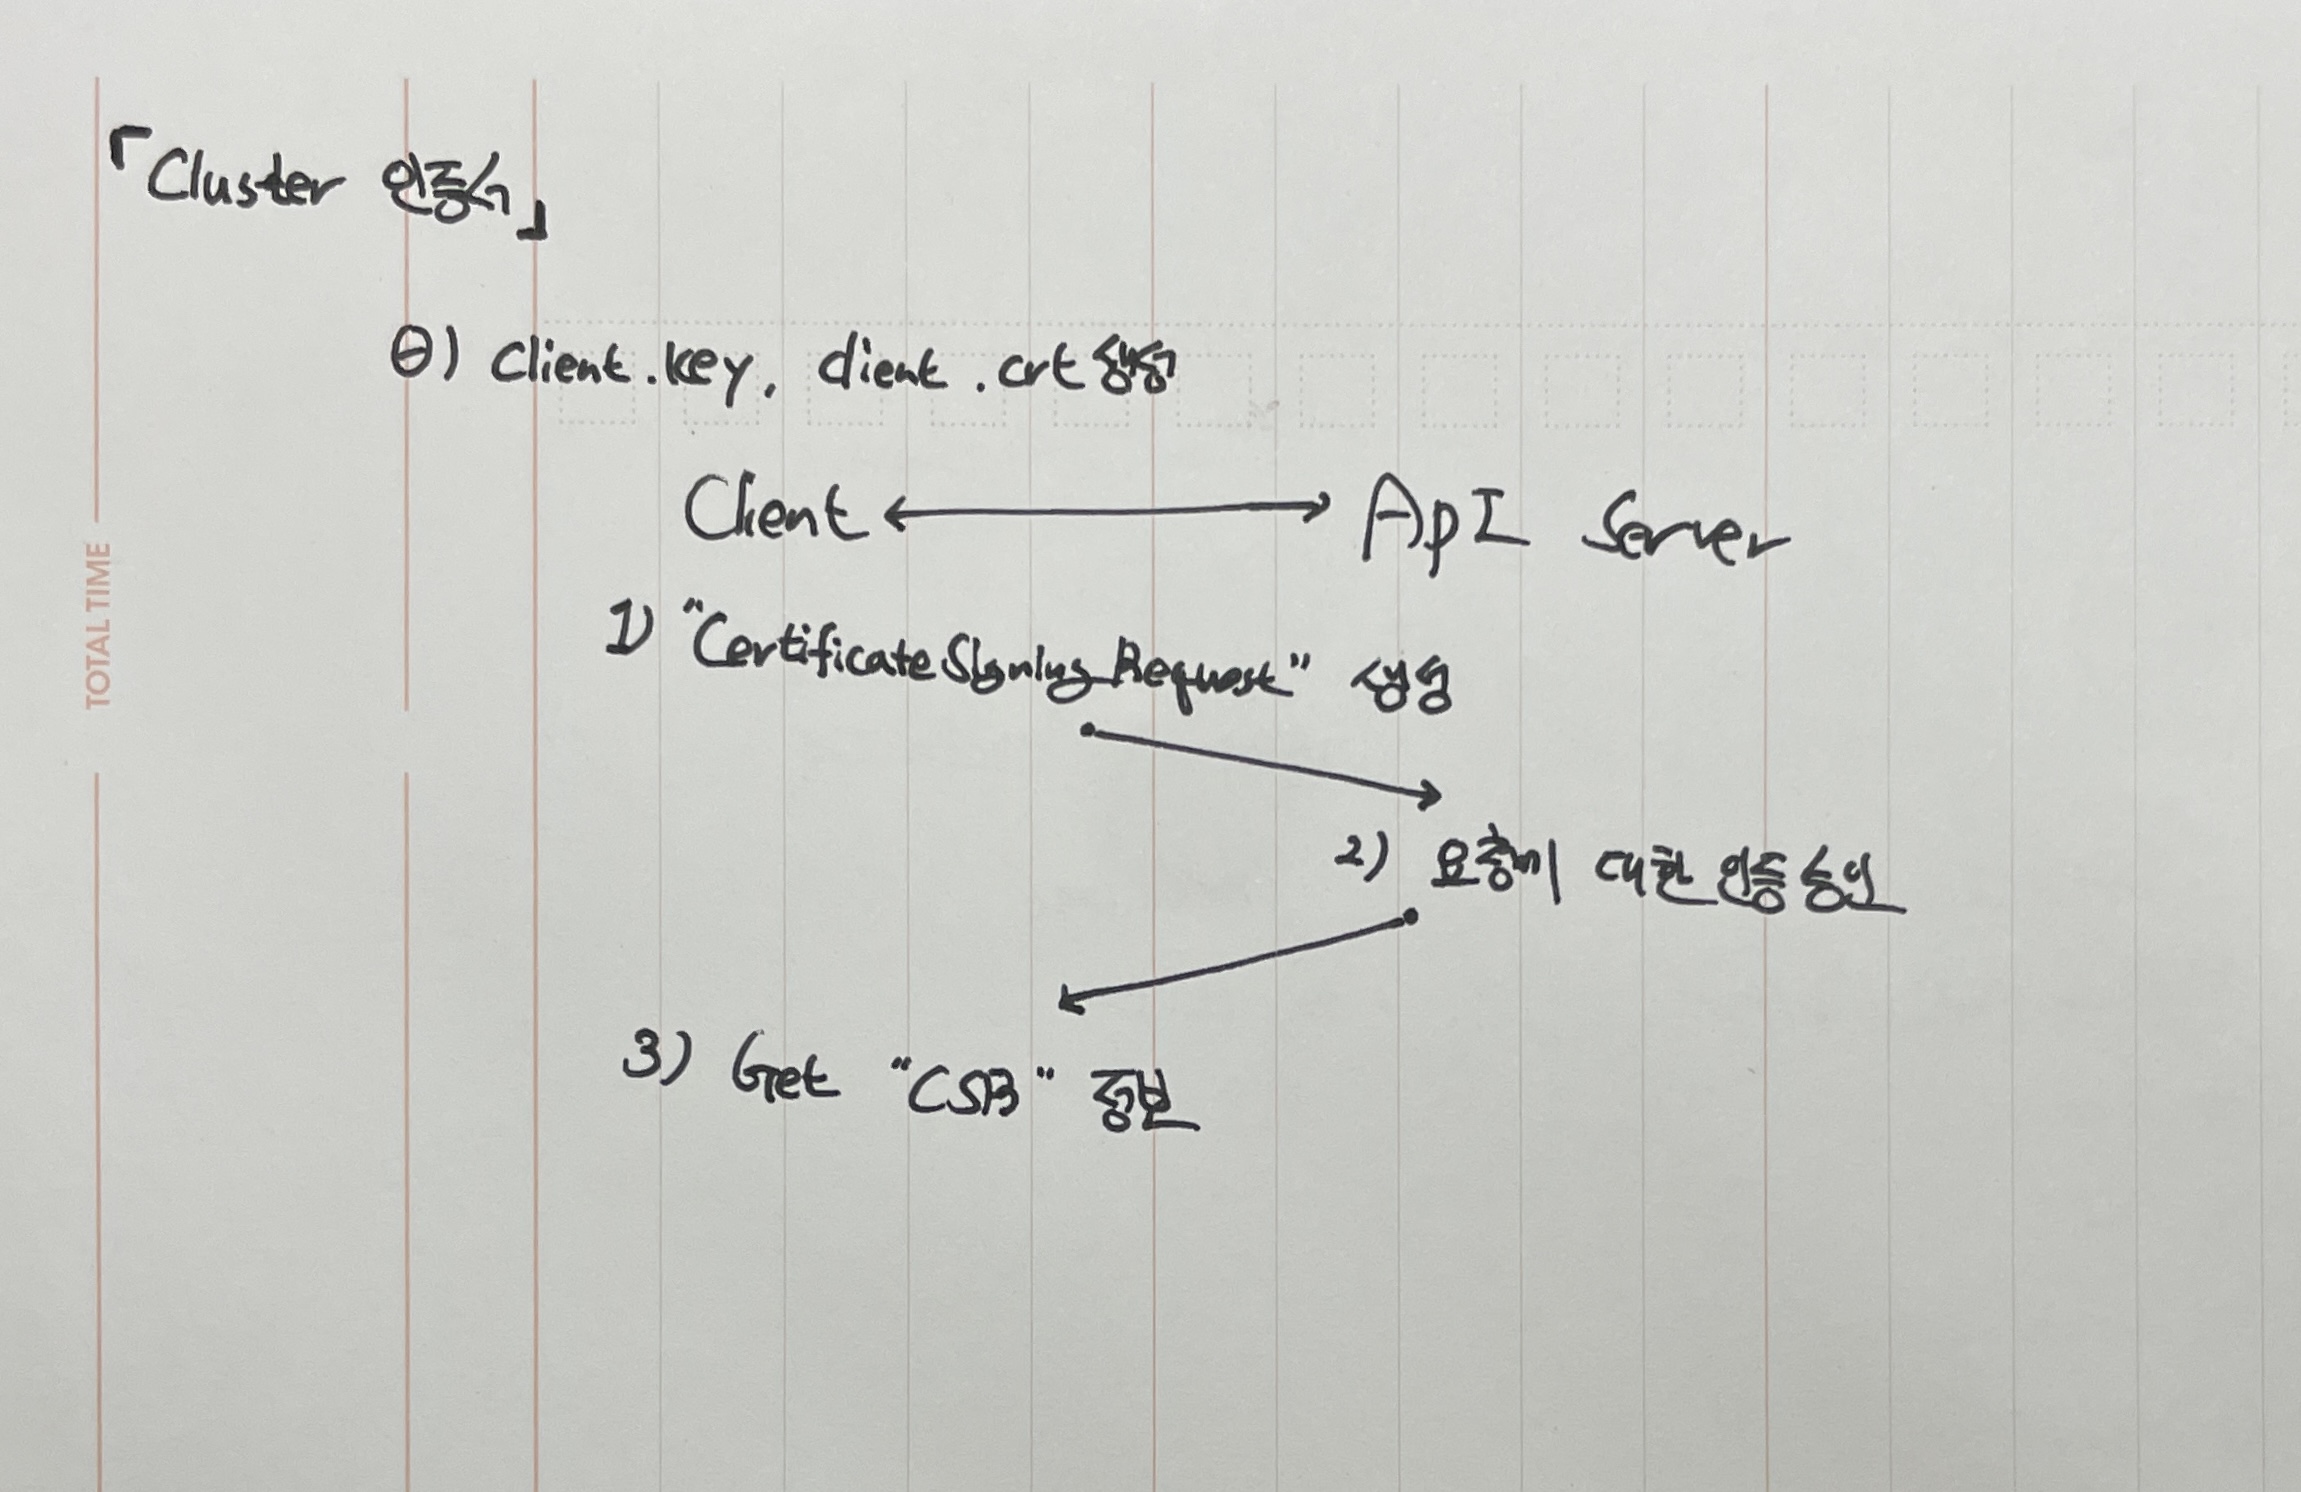 「Cluster 인증서」
0) client.key, client.crt 생성
Client ↔ ApI Server
TOTAL TIME
1) "CertificateSigningRequest" 생성
2) 요청에 대한 인증 승인
3) Get "CSR" 정보